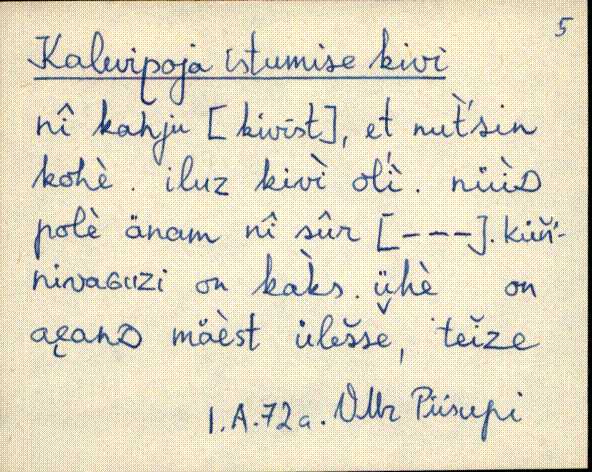 5
Kalevipoja istumise kivi
nî kahju [kivīst], et nut̀'sin
kohè. iluz kivì olì. nüìᴅ
polè änam nî sûr [---]. küǖ'-
nivaɢuzi on kaks. ühè on
aęanᴅ mäèst ülešše, teize
I.A.72a. VMr Piisupi